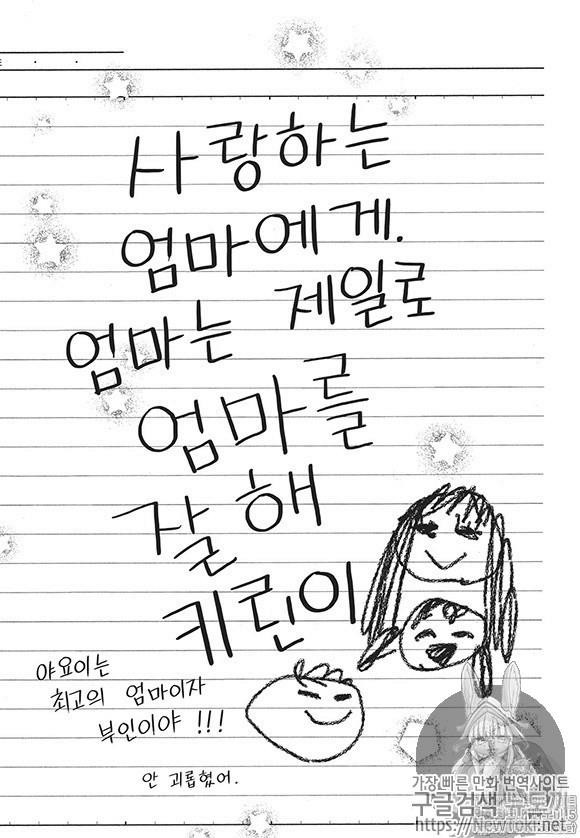 사랑하는
엄마에게.
엄마는 제일로
엄마를
잘해
키린이
야요이는
최고의 엄마이자
부인이야 !!!
안 괴롭혔어.
가장 빠른 만화 번역사이트
구글검색 뉴토끼
https://Newtoki.net